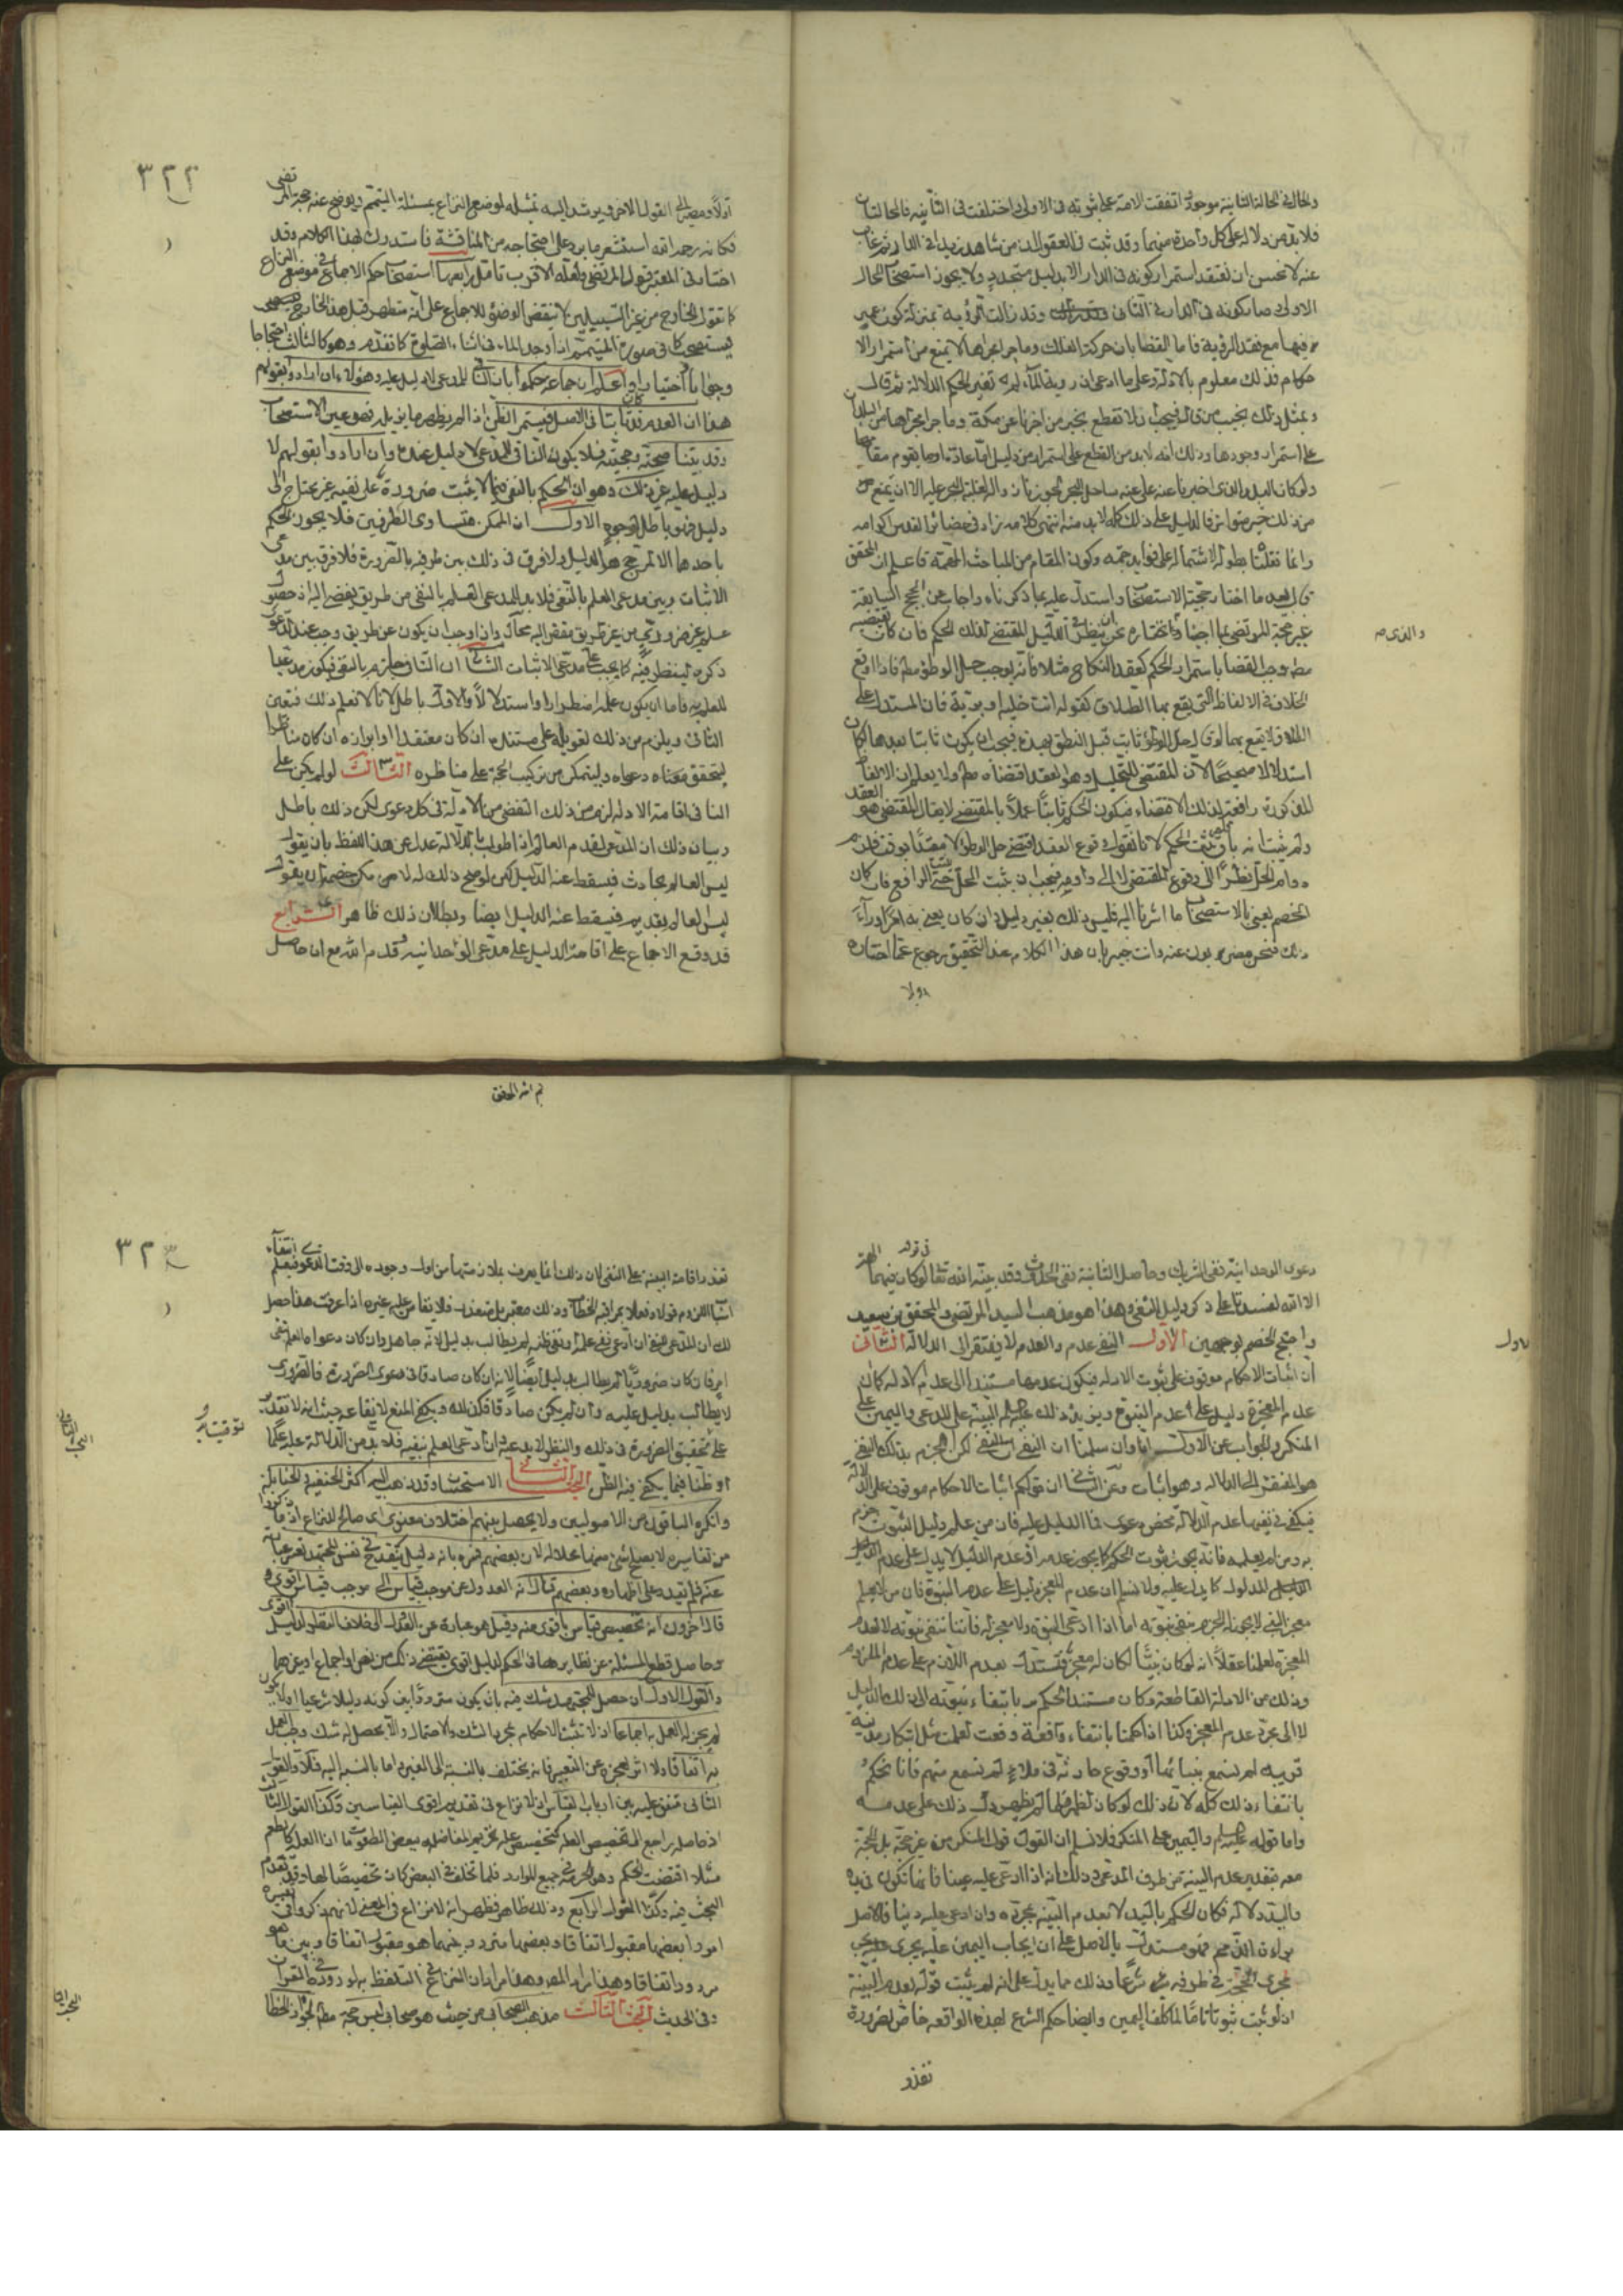 والحال في الحالة الثانية موجود اتفقت الامة على ثبوته في الاولى واختلفت في الثانية فالحالتان
فلا بد من دلالة على كل واحدة منهما وقد ثبت في العقول ان من شاهد زيدا في الدار ثم غاب
عنه لا يحسن ان يعتقد استمرار كونه في الدار الا بدليل متجدد ولا يجوز استصحاب الحال
الاولى وصار كونه في الدار في الثاني وقد زالت الرؤية بمنزلة كون عمرو
فيها مع فقد الرؤية فاما القضا بان حركة الفلك وما جرى مجراها لا يمنع من استمرار الا
حكام فذلك معلوم بالادلة وعلى من ادعى ان رؤية الماء لم تغير الحكم الدلالة ثم قال
وبمثل ذلك يجيب من قال فيجب ان لا نقطع بخبر من اخبرنا عن مكة وما جرى مجراها من البلدان
على استمرار وجودها وذلك انه لا بد من القطع على استمراره من دليل اما عادة او ما يقوم مقامها
ولو كان البلد الذي اخبرنا عنه على ساحل البحر لجوزنا زواله لغلبة البحر عليه الا ان يمنع من
من ذلك خبر متواتر فالدليل على ذلك كله لا بد منه انتهى كلامه زاد في حضائر القدس اكرامه
وانما نقلنا بطوله لاشتماله على فوايد جمة وكون المقام من المباحث المهمة فاعلم ان المحقق
بعد ما اختار حجية الاستصحاب واستدل عليه بما ذكرناه واجاب عن الحجج السابقة
غير حجة المرتضى بما اجبنا والذي نختاره نحن ان ينظر في الدليل المقتضي لذلك الحكم فان كان يقتضيه
مطلقا وجب القضا باستمرار الحكم كعقد النكاح مثلا فانه يوجب حل الوطؤ مطلقا فاذا وقع
الخلاف في الالفاظ التي يقع بها الطلاق كقوله انت خلية او برية فان المستدل على ان
الطلاق لا يقع بهما لو قال حل الوطؤ ثابت قبل النطق بهذه فيجب ان يكون ثابتا بعدها لكان
استدلالا صحيحا لان المقتضي للتحليل وهو العقد اقتضاه مطلقا ولا يعلم ان الالفاظ
المذكورة رافعة لذلك الاقتضاء فيكون الحكم ثابتا عملا بالمقتضي لا يقال المقتضي هو العقد
ولم يثبت انه باق فلم يثبت الحكم لانا نقول وقوع العقد اقتضى حل الوطؤ لا مقيدا بوقت فلزم
دوام الحل نظرا الى وقوع المقتضي لا الى دوامه فيجب ان يثبت الحل حتى يثبت الرافع فان كان
الخصم يعني بالاستصحاب ما اشرنا اليه فليس ذلك بغير دليل وان كان يعني به امرا وراء
ذلك فنحن مضربون عنه وانت خبير بان هذا الكلام عند التحقيق رجوع عما اختاره
اولا
والذي صح
٣٢٢
اولا ومصير الى القول الاخر ويرشد اليه تمثيله لموضع النزاع بمسئلة المتيمم ويوضح عنه حجة المرتضى
فكانه رحمه الله استشعر ما يرد على احتجاجه من المناقشة فاستدرك بهذا الكلام وقد
اختار في المعتبر قول المرتضى ولعله الاقرب تامل رابعها استصحاب حكم الاجماع في موضع النزاع
كما تقول الخارج من غير السبيلين لا ينقض الوضوء للاجماع على انه متطهر قبل هذا الخارج فيستصحب
كما في صورة المتيمم اذا وجد الماء في اثناء الصلوة كما تقدم وهو كالثالث احتجاجا
وجوابا واختيارا واعلم ان جماعة حكموا بان النافي للمدعى لا دليل عليه وهؤلاء ان ارادوا بقولهم
هذا ان العدم كان ثابتا في الاصل فيستمر الظن اذا لم يظهر ما يزيله فهو عين الاستصحاب
وقد بينا صحته وحجيته فلا يكون النافي للمدعى لا دليل عنده وان ارادوا بقولهم لا
دليل عليه غير ذلك وهو ان الحكم بالنفي مما لا يثبت ضرورة على نفيه غير محتاج الى
دليل فهو باطل لوجوه الاول ان الممكن متساوي الطرفين فلا يجوز الحكم
باحدهما الا لمرجح هو الدليل ولا فرق في ذلك بين طرفيه بالضرورة فلا فرق بين مدعى
الاثبات وبين مدعى العلم بالنفي فلا بد للمدعى العلم بالنفي من طريق يفضي اليه اذ حصول
علم غير ضروري من غير طريق مفض اليه محال واذا وجب ان يكون عن طريق وجب عند الدعوى
ذكره لينظر فيه كما يجب على مدعى الاثبات الثاني ان النافي جازم بالنفي فيكون مدعيا
للعلم به فاما ان يكون علمه اضطرارا او استدلالا والاول باطل لانا لا نعلم ذلك فتعين
الثاني ويلزم من ذلك تعويله على مستنده ان كان معتقدا وابرازه ان كان مناظرا
ليتحقق معناه دعواه وليتمكن من تركيب الحجة على مناظره الثالث لو لم يكن على
النافي اقامة الادلة لزم من ذلك التفصي من الادلة في كل دعوى لكن ذلك باطل
وبيان ذلك ان المدعى لقدم العالم اذا طولب بالدلالة عدل عن هذا اللفظ بان يقول
ليس العالم بحادث فيسقط عنه الدليل لكن لو صح ذلك له لامكن خصمه ان يقول
ليس العالم بقديم فيسقط عنه الدليل ايضا وبطلان ذلك ظاهر الرابع
قد وقع الاجماع على اقامة الدليل على مدعى الوحدانية وقدم الله مع ان حاصل
ثم الله الموفق
دعوى الوحدانية نفي الشريك وحاصل الثانية نفي الحدوث وقد بينه الله تعالى في قوله لو كان فيهما آلهة
الا الله لفسدتا على ذكر دليل النفي وهذا هو مذهب السيد المرتضى والمحقق بن سعيد
واحتج الخصم بوجهين الاول النفي عدم والعدم لا يفتقر الى الدلالة الثاني
ان اثبات الاحكام موقوف على ثبوت الادلة فيكون عدمها مستندا الى عدم الادلة كما ان
عدم المعجزة دليل على عدم النبوة ويزيد ذلك قوله عليه السلام البينة على المدعي واليمين على
المنكر والجواب عن الاول انا وان سلمنا ان النفي ليس لكن الجزم بذلك النفي
هو المفتقر الى الدلالة وهو اثبات وعن الثاني ان قولكم اثبات الاحكام موقوف على الادلة
فيكفي في نفيها عدم الدلالة محض دعوى فاما الدليل عليه فان من علم دليل الثبوت جزم
به ومن لم يعلمه فانه يجوز ثبوت الحكم كما يجوز عدمه اذ عدم الدليل لا يدل على عدم
المدلول كما يدل عليه ولا نسلم ان عدم المعجزة دليل على عدم النبوة فان من لا يعلم
معجز النبي لا يجوز له الجزم بنفي نبوته اما اذا ادعى النبوة ولا معجز له فاننا ننفي نبوته لا لعدم
المعجزة لعلمنا عقلا انه لو كان نبيا لكان له معجزة فنستدل بعدم اللازم على عدم الملزوم
وذلك من الادلة القاطعة وكان مستند الحكم بانتفاء نبوته الى ذلك الدليل
لا الى مجرد عدم المعجز وكذا اذا حكمنا بانتفاء واقعة وقعت لعلمت مثل انكار مدينة
قريبة لم نسمع بنبائها او وقوع حادثة في ملاء لم نسمع منهم فانا نحكم
بانتفاء ذلك كله لان ذلك لو كان لظهر فلما لم يظهر دل ذلك على عدمه
واما قوله عليه السلام واليمين على المنكر فلا نسلم ان القول قول المنكر من غير حجة بل الحجة
معه بتقدير عدم البينة من طرف المدعي وذلك انه اذا ادعى عليه عينا فانها تكون في يده
واليد دلالة فكان الحكم باليد لا بعدم البينة بمجرده وان ادعى عليه دينا فالاصل
براءة الذمة فهو مستدل بالاصل على ان ايجاب اليمين عليه يجري
مجرى الحجة في طرفه شرعا وذلك مما يدل على انه لم يثبت قوله بعدم البينة
اذ لو ثبت ثبوتا تاما لما كلف اليمين وايضا حكم الشرع لهذه الواقعة خاص لضرورة
تعذر
الاول
٣٢٣
تعذر اقامة البينة على النفي لان ذلك انما يعرف بملازمتهما من اول وجوده الى وقت الدعوى فيعلم انتفاء
اسباب اللزوم قولا وفعلا بمراقبة اللحظات وذلك معتبر بل متعذر فلا يقاس عليه غيره اذا عرفت هذا حصل
لك ان المدعي للنفي ان ادعى نفي علمه او نفي ظنه لم يطالب بدليل لانه جاهل وان كان دعواه العلم بنفي
امر فان كان ضروريا لم يطالب بدليل ايضا لانه ان كان صادقا في دعوى الضرورة فالضروري
لا يطالب بدليل عليه وان لم يكن صادقا فكذلك ويكفي المنع لايقاعه حيث انه لا تقدر
على تحقيق الضرورة في ذلك والنظر لا يدعيه وان ادعى العلم بنفيه فلا بد من الدلالة عليه علما
او ظنا فيما يكفي فيه الظن البحث الثاني الاستحسان وقد ذهب اليه اكثر الحنفية والحنابلة
وانكره الباقون من الاصوليين ولا يحصل بينهم اختلاف معنوي اي صالح للنزاع اذ ما ذكروا
من تفاسيره لا يصلح شئ منها محلا له لان بعضهم فسره بانه دليل ينقدح في نفس المجتهد تعسر عبارته
عنه فلم يقدر على اظهاره وبعضهم قال انه العدول عن موجب قياس الى موجب قياس اقوى
قال آخرون انه تخصيص قياس باقوى منه وقيل هو عبارة عن العدول الى خلاف النظير لدليل اقوى
وحاصله قطع المسئلة عن نظايرها في الحكم لدليل اقوى يقتضي ذلك من نص او اجماع او غيرهما
والقول الاول ان حصل للمجتهد شك فيه بان يكون مترددا بين كونه دليلا شرعيا او لا
لم يجز له العمل به اجماعا اذ لا تثبت الاحكام بمجرد الشك والاحتمال والا يحصل له شك وجب العمل
به اتفاقا ولا اثر لعجزه عن التعبير فانه يختلف بالنسبة الى الغير واما بالنسبة اليه فلا والقول
الثاني متفق عليه بين ارباب القياس اذ لا نزاع في تقديم اقوى القياسين وكذا القول الثالث
اذ حاصله راجع الى تخصيص العلة كتخصيص علة تحريم المفاضلة ببعض الطعومات فانا العلة كالطعم
مثلا اقتضت الحكم وهو الحرمة في جميع الموارد فلما تخلف في البعض كان تخصيصا لها وقد تقدم
البحث فيه وكذا القول الرابع وذلك ظاهر فظهر انه لا نزاع في المعنى لانهم ذكروا في تفسيره
امورا بعضها مقبول اتفاقا وبعضها متردد بينهما هو مقبول اتفاقا وبين ما هو
مردود اتفاقا وهذا مراد المصنف وهذا مراد ان النزاع في التلفظ به لوروده في القرآن
وفي الحديث البحث الثالث مذهب الصحابي من حيث هو صحابي ليس حجة مطلقا لجواز الخطا
البحث الثاني
البحث الثالث